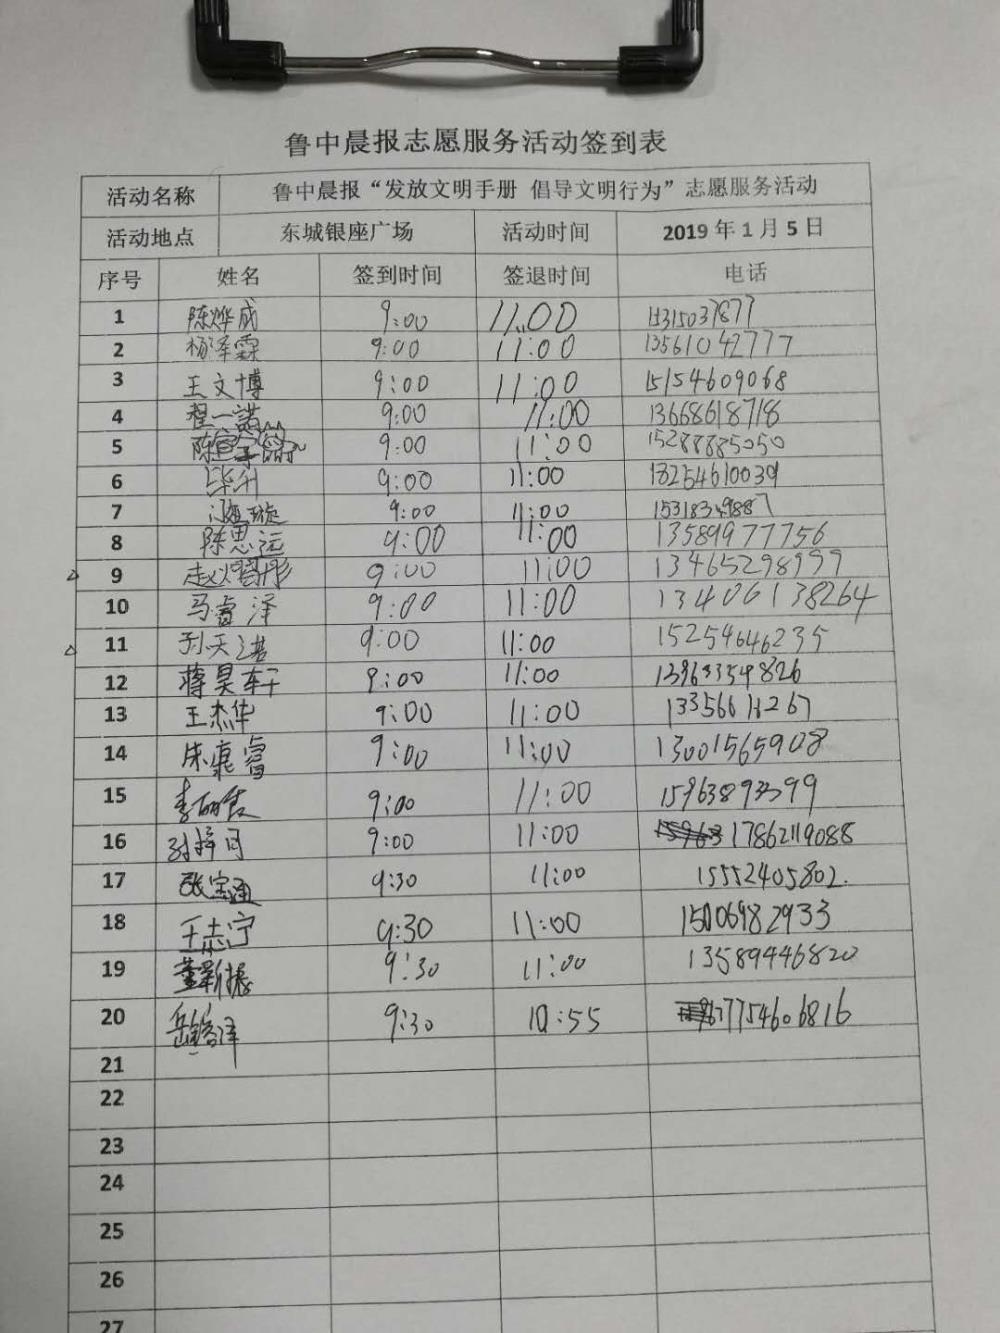 鲁中晨报志愿服务活动签到表
活动名称 鲁中晨报“发放文明手册 倡导文明行为”志愿服务活动
活动地点 东城银座广场 活动时间 2019年1月5日
序号 姓名 签到时间 签退时间 电话
1 陈烨成 9:00 11:00 15315037877
2 杨泽霖 9:00 11:00 13561042777
3 王文博 9:00 11:00 15154609068
4 程一諾 9:00 11:00 13668618718
5 9:00 11:00 15288885050
6 毕升 9:00 11:00 13254610039
7 9:00 11:00 15318349887
8 陈思远 9:00 11:00 13589977756
9 9:00 11:00 13465298999
10 马睿泽 9:00 11:00 13406138264
11 孙天诺 9:00 11:00 15254646235
12 蒋昊轩 9:00 11:00 13963354826
13 王杰华 9:00 11:00
14 朱宸睿 9:00 11:00 13001565908
15 9:00 11:00 15963893399
16 9:00 11:00 17862119088
17 张宝通 9:30 11:00 15552405802.
18 王志宁 9:30 11:00 15006982933
19 董新振 9:30 11:00 13589446820
20 9:30 10:55 17754606816
21
22
23
24
25
26
27